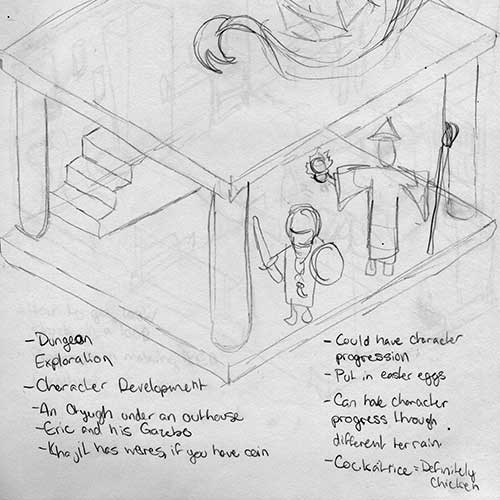 -Dungeon
Exploration
-Character Development
-An Otyugh under an outhouse
-Eric and his Gazebo
-Khajiit has wares, if you have coin
-Could have character
progression
-Put in easter eggs
-Can have character
progress through
different terrain
-Cockatrice = Definitely
Chicken